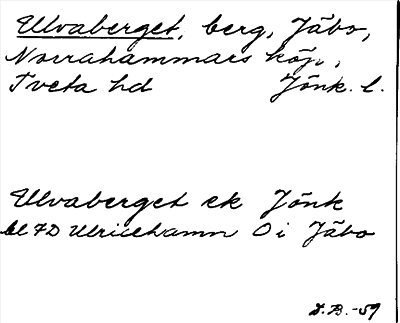 Ulvaberget, berg, Jäbo,
Norrahammars köp,
Tveta hd Jönk. l.
Ulvaberget ek Jönk
bl 7D Ulricehamn O i Jäbo
D.B.-59